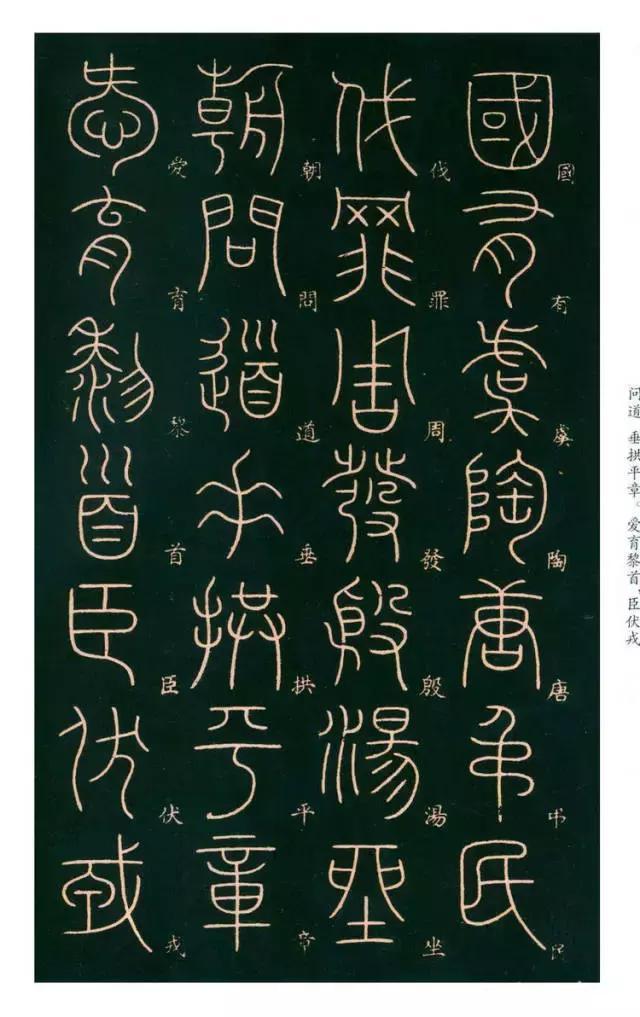 國有虞陶唐弔民
國有虞陶唐弔民
伐罪周發殷湯坐
伐罪周發殷湯坐
朝問道垂拱平章
朝問道垂拱平章
愛育黎首臣伏戎
愛育黎首臣伏戎
问道 垂拱平章。爱育黎首,臣伏戎